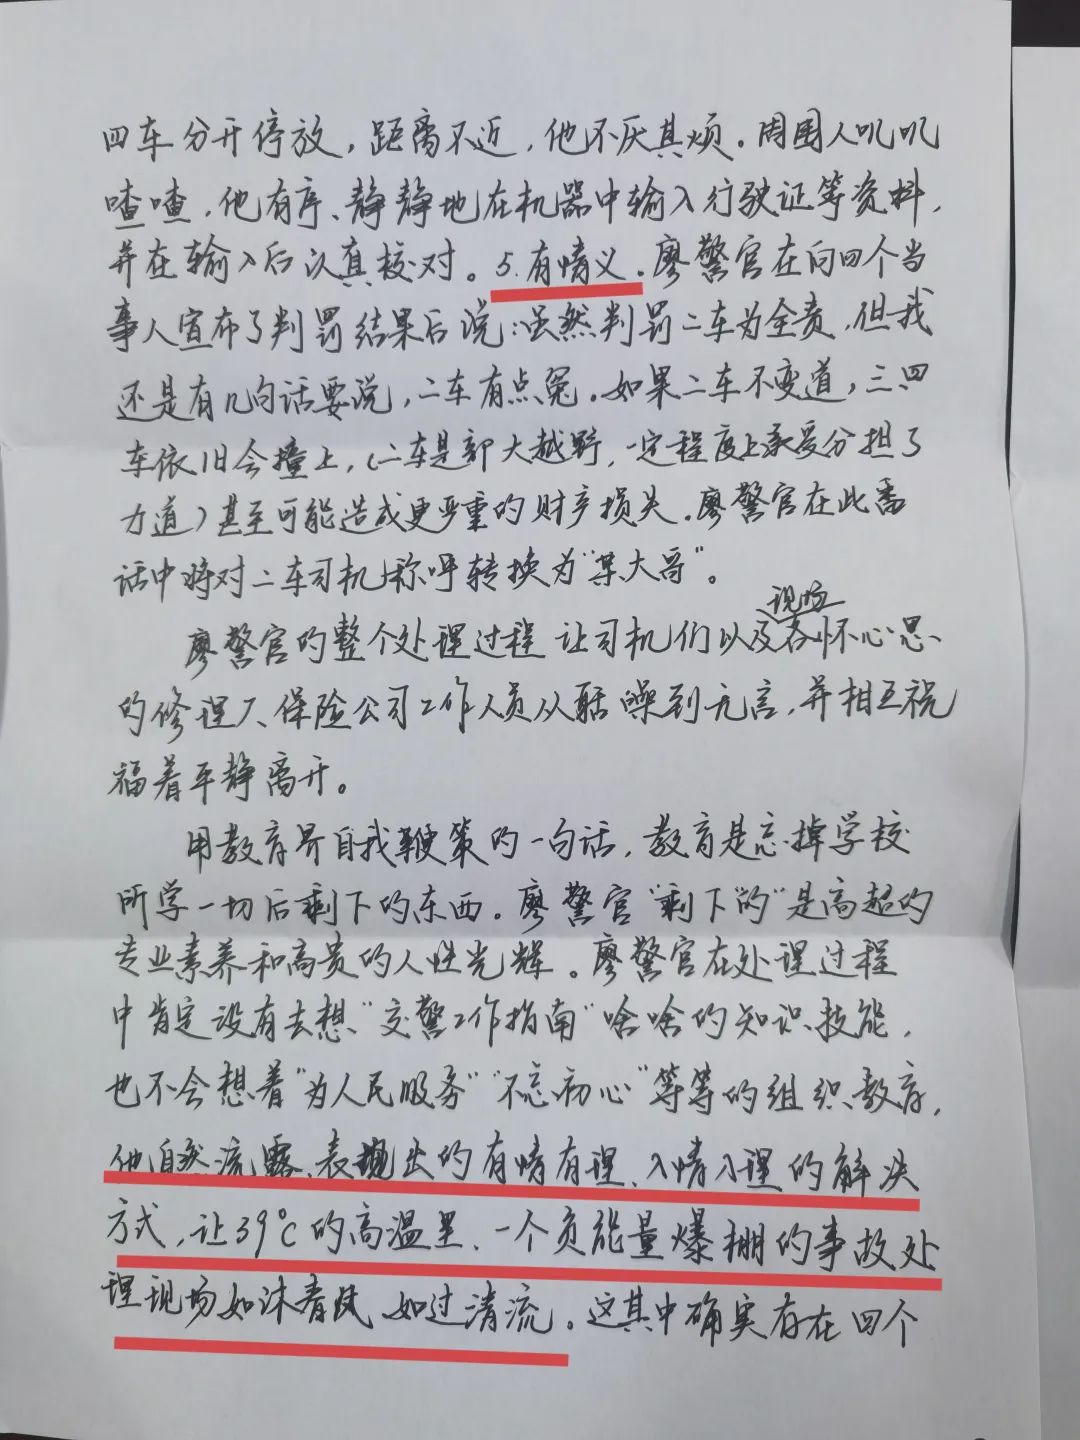 四车分开停放，距离不近，他不厌其烦。周围人叽叽
喳喳，他有序、静静地在机器中输入行驶证等资料，
并在输入后认真核对。5.有情义。廖警官在向四个当
事人宣布了判罚结果后说：虽然判罚二车为全责，但我
还是有几句话要说，二车有点冤。如果二车不变道，三四
车依旧会撞上，（二车是部大越野，一定程度上承受分担了
力道）甚至可能造成更严重的财产损失。廖警官在此番
话中将对二车司机称呼转换为“某大哥”。
现场
廖警官的整个处理过程让司机们以及各怀心思
的修理厂、保险公司工作人员从聒噪到无言，并相互祝
福着平静离开。
用教育界自我鞭策的一句话，教育是忘掉学校
所学一切后剩下的东西。廖警官“剩下的”是高超的
专业素养和高贵的人性光辉。廖警官在处理过程
中肯定没有去想“交警工作指南”啥啥的知识技能，
也不会想着“为人民服务”“不忘初心”等等的组织教育，
他自然流露、表现出的有情有理、入情入理的解决
方式，让39℃的高温里、一个负能量爆棚的事故处
理现场如沐春风、如过清流。这其中确实存在四个